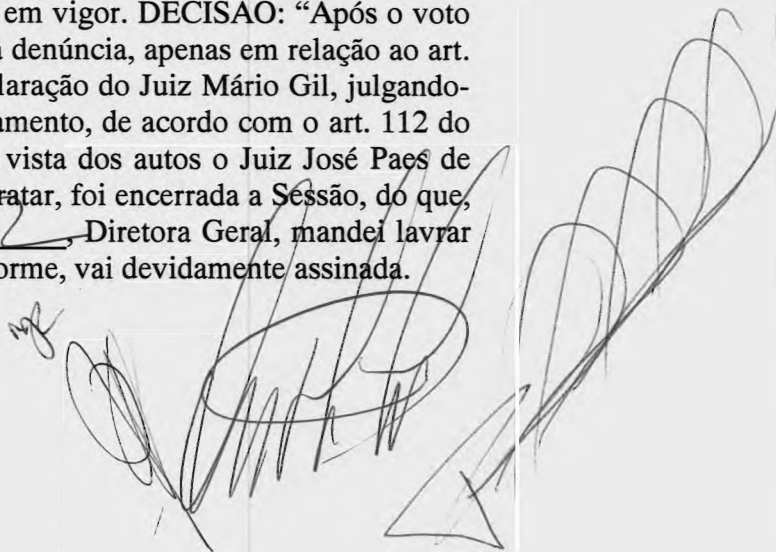 em vigor. DECISÃO: “Após o voto
denúncia, apenas em relação ao art.
laração do Juiz Mário Gil, julgando-
amento, de acordo com o art. 112 do
vista dos autos o Juiz José Paes de
ratar, foi encerrada a Sessão, do que,
, Diretora Geral, mandei lavrar
orme, vai devidamente assinada.